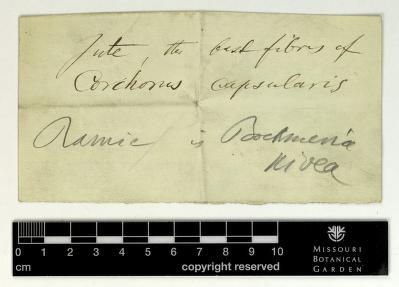 Jute, the bast fibres of
Corchorus capsularis
Ramie is Boehmeria
Nivea
0 1 2 3 4 5 6 7 8 9 10
cm
copyright reserved
MISSOURI
BOTANICAL
GARDEN